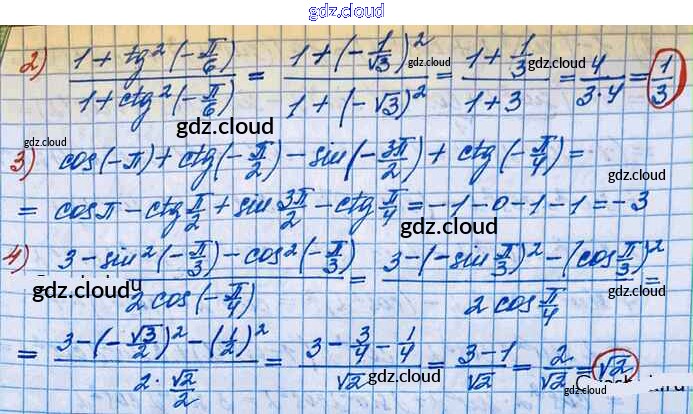 gdz.cloud
2) (1 + tg²(-π/6))/(1 + ctg²(-π/6)) = (1 + (-1/√3)²)/(1 + (-√3)²) = (1 + 1/3)/(1 + 3) = 4/(3·4) = 1/3
gdz.cloud gdz.cloud gdz.cloud gdz.cloud
3) cos(-π) + ctg(-π/2) - sin(-3π/2) + ctg(-π/4) =
gdz.cloud gdz.cloud
= cosπ - ctg π/2 + sin 3π/2 - ctg π/4 = -1 - 0 - 1 - 1 = -3
gdz.cloud gdz.cloud
4) (3 - sin²(-π/3) - cos²(-π/3))/(2cos(-π/4)) = (3 - (-sin π/3)² - (cos π/3)²)/(2cos π/4) =
gdz.cloud gdz.cloud gdz.cloud
= (3 - (-√3/2)² - (1/2)²)/(2·√2/2) = (3 - 3/4 - 1/4)/√2 = (3 - 1)/√2 = 2/√2 = √2
gdz.cloud gdz.cloud